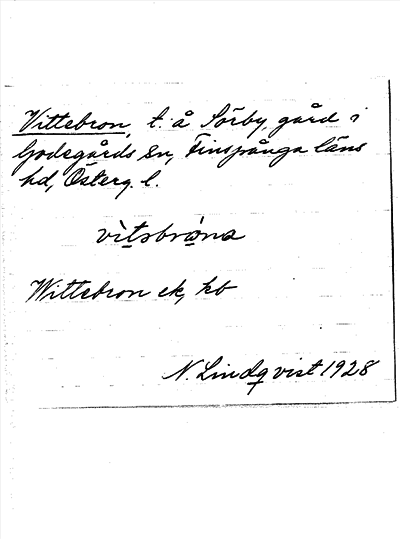 Vittebron, t. å Sörby, gård i
Godegårds sn, Finspånga läns
hd, Österg. l.
vìtsbrǫ̀na
Wittebron ek, kb
N. Lindqvist 1928